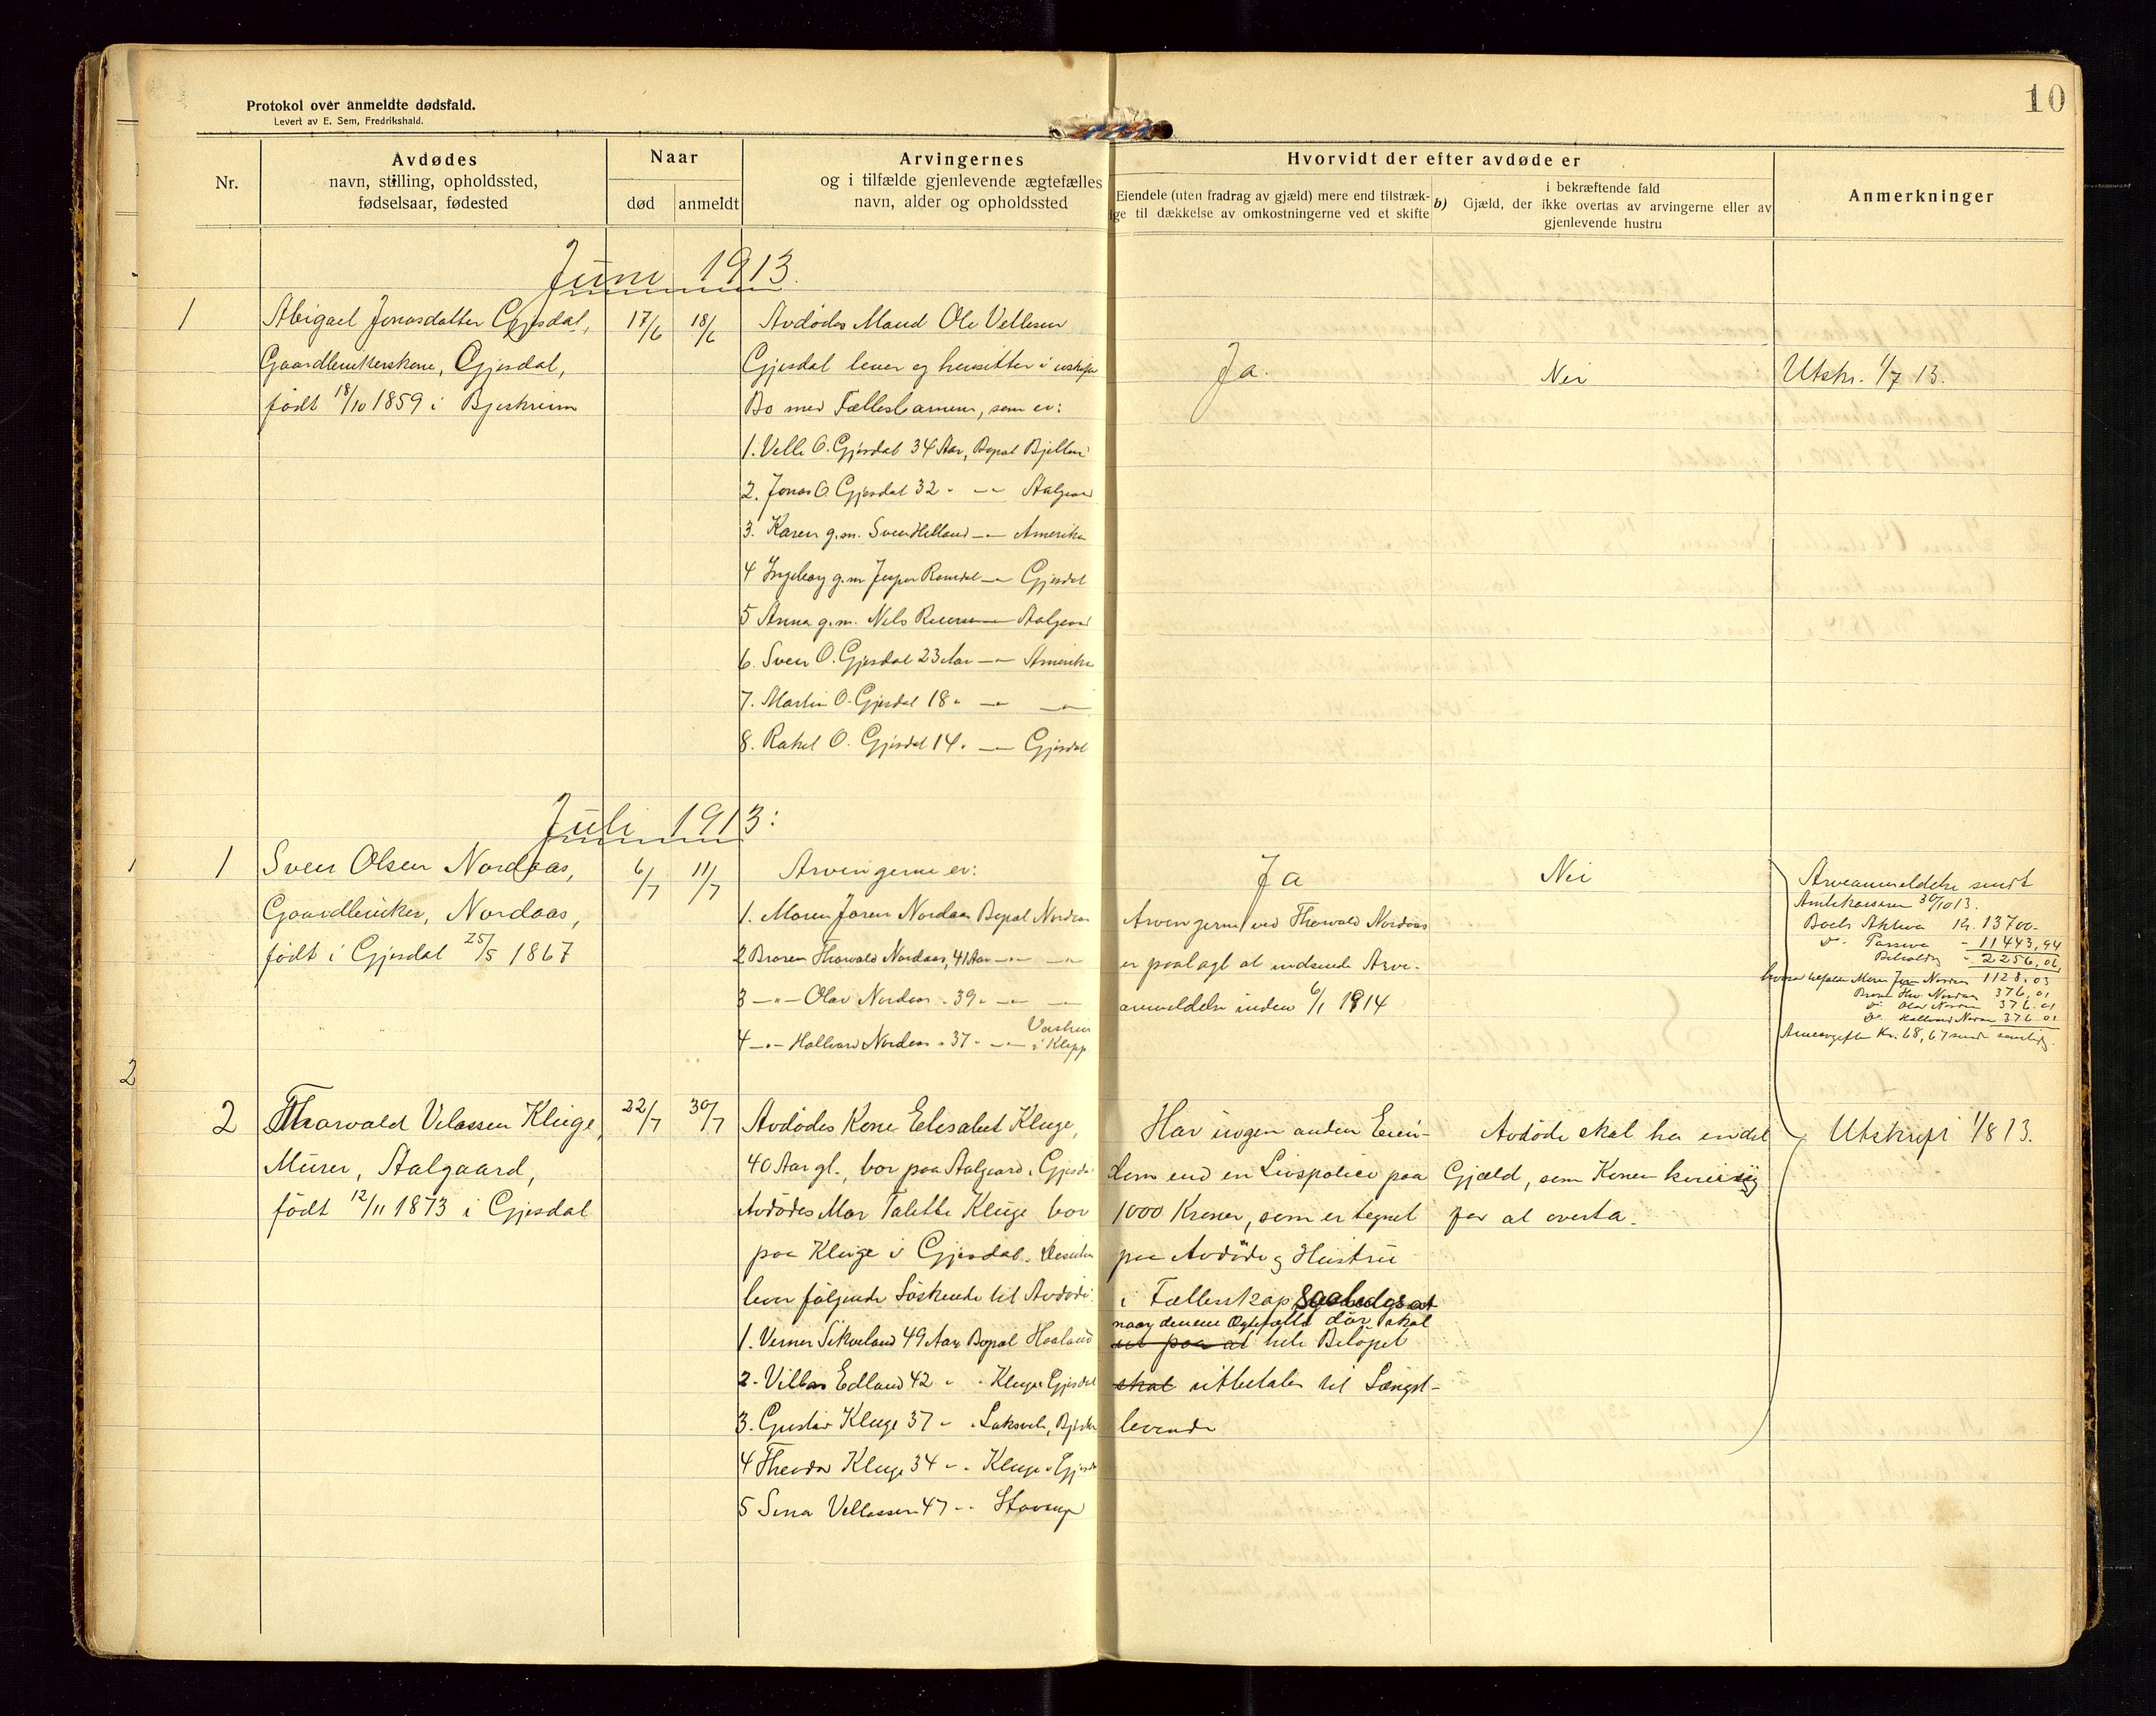 10
Protokol over anmeldte dødsfald.
Levert av E. Sem, Fredrikshald.
Nr.
Avdødes
navn, stilling, opholdssted,
fødselsaar, fødested
Naar
død
anmeldt
Arvingernes
og i tilfælde gjenlevende ægtefælles
navn, alder og opholdssted
Hvorvidt der efter avdøde er
Eiendele (uten fradrag av gjæld) mere end tilstræk-
ge til dækkelse av omkostningerne ved et skifte
b)
i bekræftende fald
Gjæld, der ikke overtas av arvingerne eller av
gjenlevende hustru
Anmerkninger
Juni 1913.
1
Abigael Jonasdatter Gjesdal,
Gaardbrukerskone, Gjesdal,
født 18/10 1859 i Bjerkreim
17/6
18/6
Avdødes Mand Ole Vellesen
Gjesdal lever og hensitter i uskiftet
Bo med Fællesbarnene, som er:
1. Velle O. Gjesdal 34 Aar, Bopal
2. Jonas O. Gjesdal 32 " —"— Aalgaard
3. Karen g.m. Svend Helland —"— Amerika
4 Ingeborg g.m. Jesper —"— Gjesdal
5 Anna g.m. Nils —"— Aalgaard
6. Sven O. Gjesdal 23 Aar —"— Amerika
7. Martin O. Gjesdal 18 " —"— —"—
8. Rakel O. Gjesdal 14 " —"— Gjesdal
Ja.
Nei
Utskr. 1/7 13.
Juli 1913:
1
Sven Olsen Nordaas,
Gaardbruker, Nordaas,
født i Gjesdal 25/5 1867
6/7
11/7
Arvingerne er:
1. Moren Joren Nordaas Bopal Nordaas
2 Broren Thorvald Nordaas, 41 Aar —"— —"—
3 —"— Olav Nordaas " 39 " —"— —"—
4 —"— Hallvard Nordaas " 37 " —"— i Klepp
Ja
Arvingerne ved Thorvald Nordaas
er paalagt at indsende Arve-
anmeldelse inden 6/1 1914
Nei
Arveanmeldelse sendt
Amtskasseren 30/10 13.
Boets Aktiva Kr. 13700.-
do. Passiva - 11443,94
Beholdn. - 2256,06
Moren Joren Nordaas 1128.03
Broren Thv. Nordaas 376,01
do. Olav Nordaas 376.01
do. Hallvard Nordaas 376 01
Arveavgiften Kr. 68,67 sendt samtidig.
2
2
Thorvald Velassen Kluge,
Murer, Aalgaard,
født 12/11 1873 i Gjesdal
22/7
30/7
Avdødes Kone Elesabet Kluge,
40 Aar gl., bor paa Aalgaard i Gjesdal
Avdødes Mor Talette Kluge bor
paa Kluge i Gjesdal. Desuten
lever følgende Søskende til Avdøde:
1. Verner Sikveland 49 Aar Bopal Haaland
2. Edland 42 " " Kluge i Gjesdal
3. Gustav Kluge 37 " "
4 Theodor Kluge 34 " " Kluge i Gjesdal
5 Sena Vellassen 47 " " Stavanger
Har ingen anden Eien-
dom end en Livspolice paa
1000 Kroner, som er tegnet
paa Avdøde og Hustru
i Fællesskap, saaledes at
naar denene Ægtefælle dør skal
ut paa at hele Beløpet
skal utbetales til Længst-
levende
Avdøde skal ha endel
Gjæld, som Konen kvier sig
for at overta.
Utskrift 1/8 13.